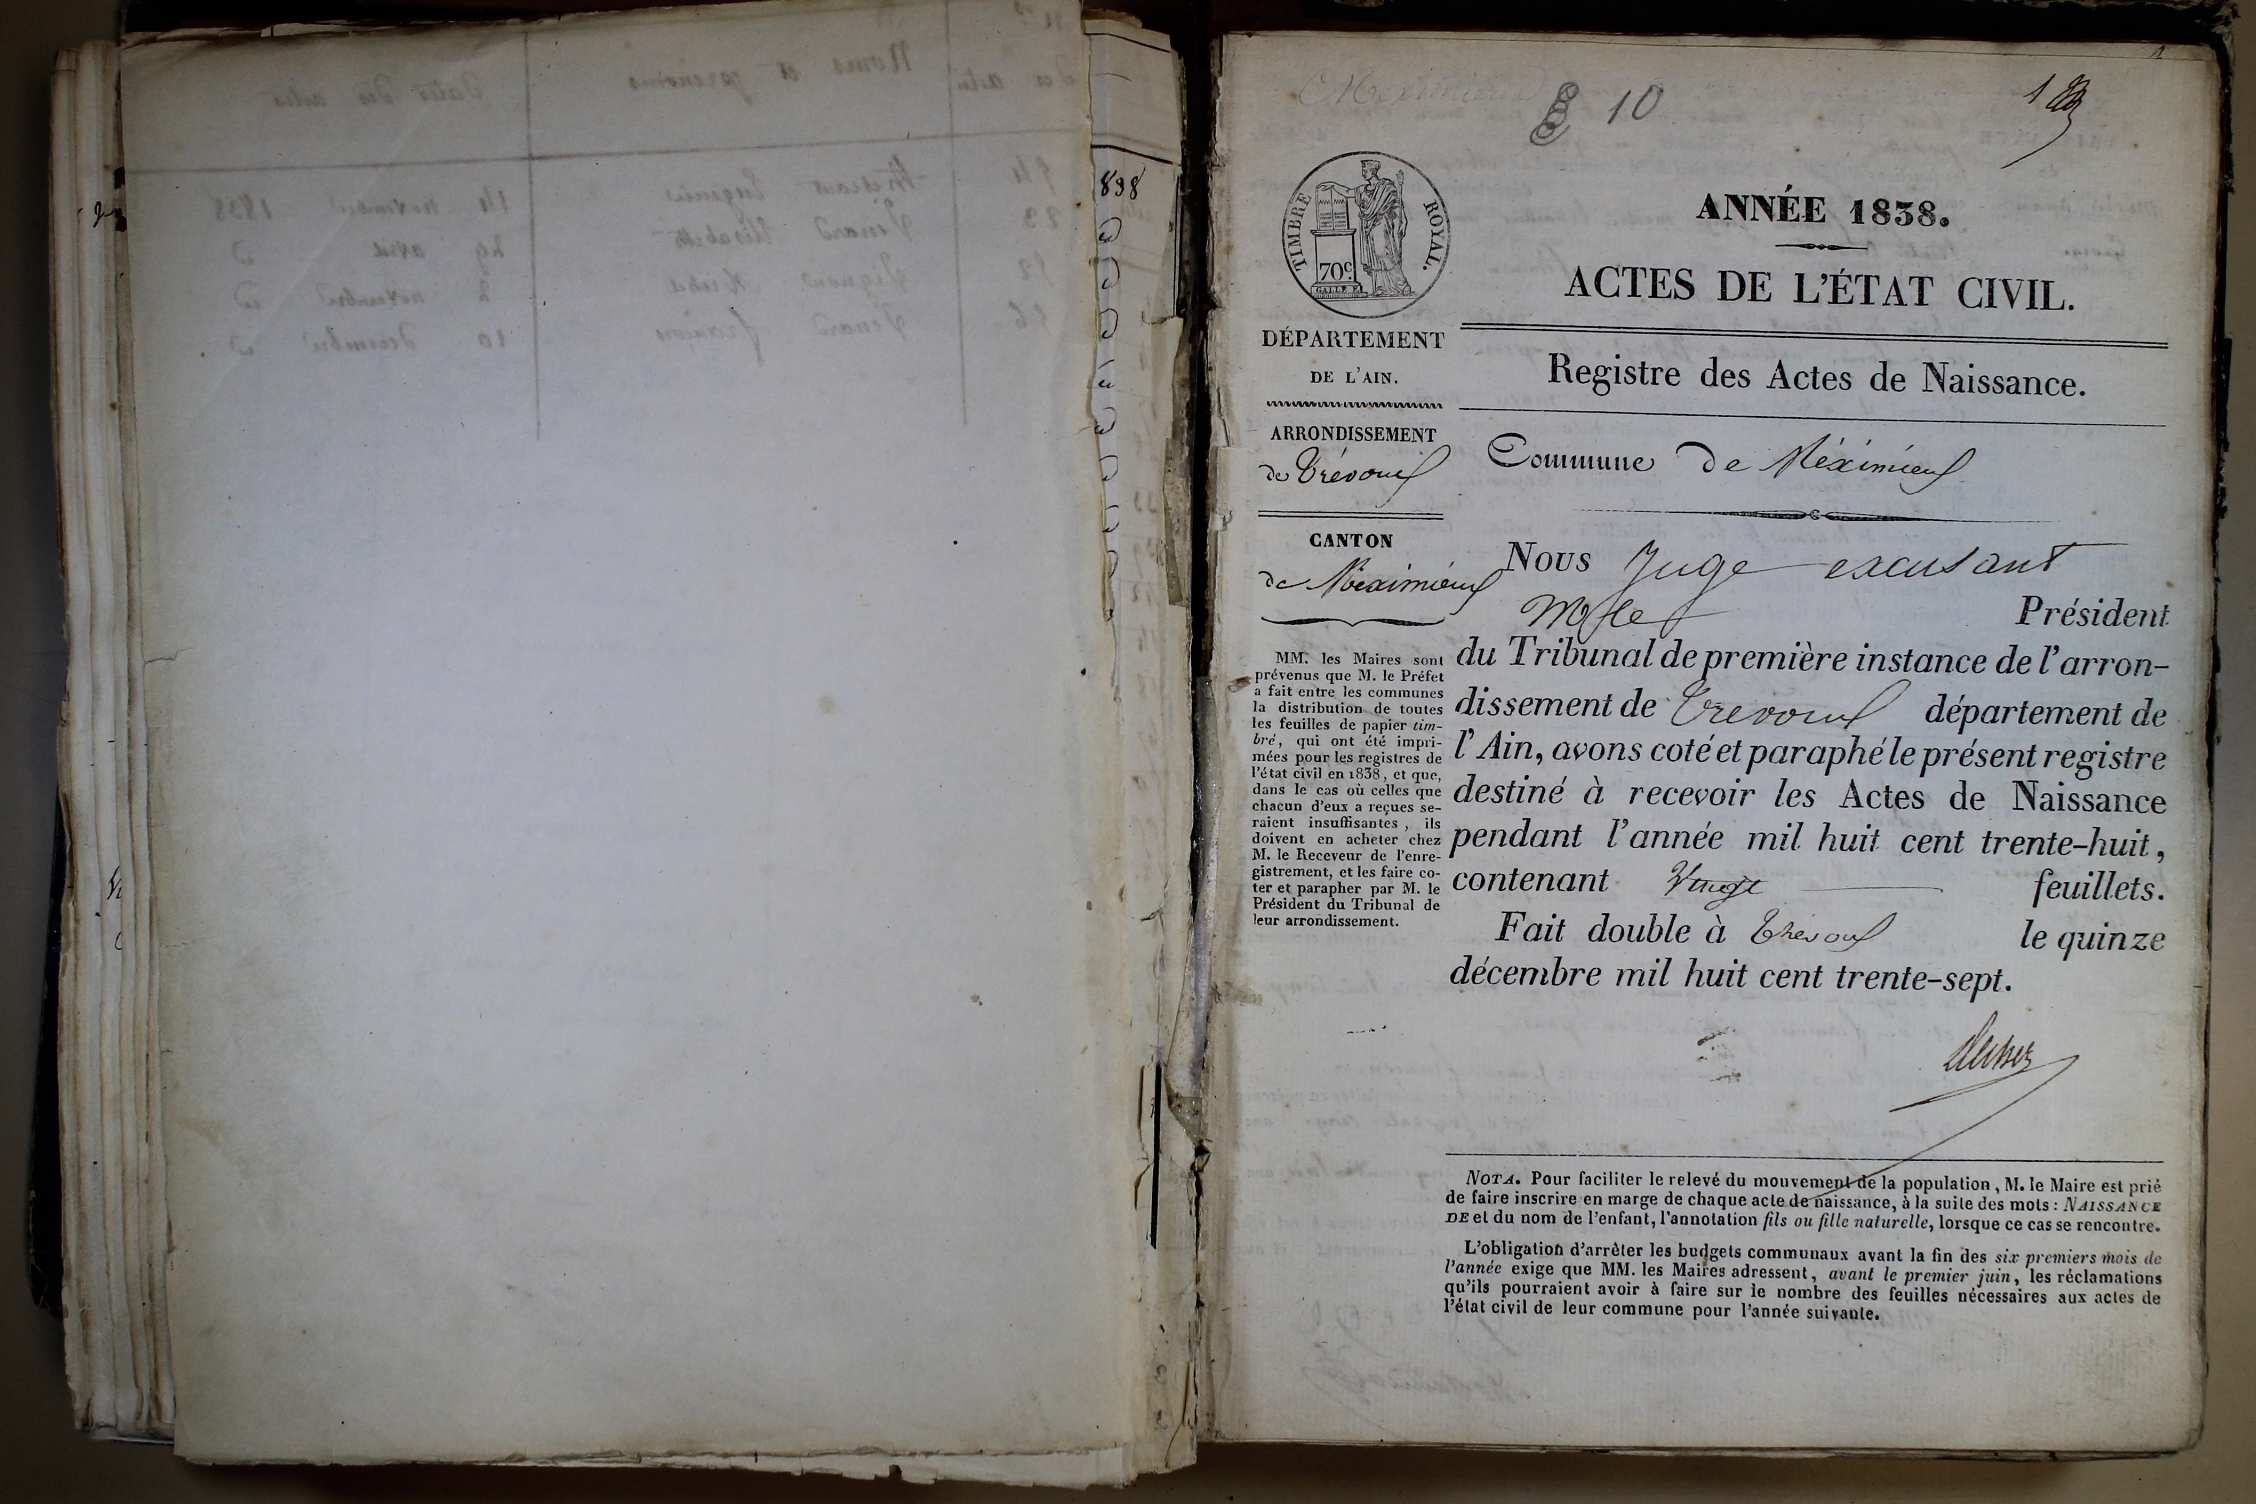 838
10
1
ANNÉE 1838.
ACTES DE L'ÉTAT CIVIL.
TIMBRE ROYAL.
70c
GALLE F.
DÉPARTEMENT
DE L'AIN.
ARRONDISSEMENT
de Trévoux
CANTON
de Méximieux
MM. les Maires sont
prévenus que M. le Préfet
a fait entre les communes
la distribution de toutes
les feuilles de papier tim-
bré, qui ont été impri-
mées pour les registres de
l'état civil en 1838, et que,
dans le cas où celles que
chacun d'eux a reçues se-
raient insuffisantes, ils
doivent en acheter chez
M. le Receveur de l'enre-
gistrement, et les faire co-
ter et parapher par M. le
Président du Tribunal de
leur arrondissement.
Registre des Actes de Naissance.
Commune de Méximieux
Nous Juge excusant
Mr le Président
du Tribunal de première instance de l'arron-
dissement de Trévoux département de
l'Ain, avons coté et paraphé le présent registre
destiné à recevoir les Actes de Naissance
pendant l'année mil huit cent trente-huit,
contenant Vingt feuillets.
Fait double à Trévoux le quinze
décembre mil huit cent trente-sept.
NOTA. Pour faciliter le relevé du mouvement de la population, M. le Maire est prié
de faire inscrire en marge de chaque acte de naissance, à la suite des mots : NAISSANCE
DE et du nom de l'enfant, l'annotation fils ou fille naturelle, lorsque ce cas se rencontre.
L'obligation d'arrêter les budgets communaux avant la fin des six premiers mois de
l'année exige que MM. les Maires adressent, avant le premier juin, les réclamations
qu'ils pourraient avoir à faire sur le nombre des feuilles nécessaires aux actes de
l'état civil de leur commune pour l'année suivante.